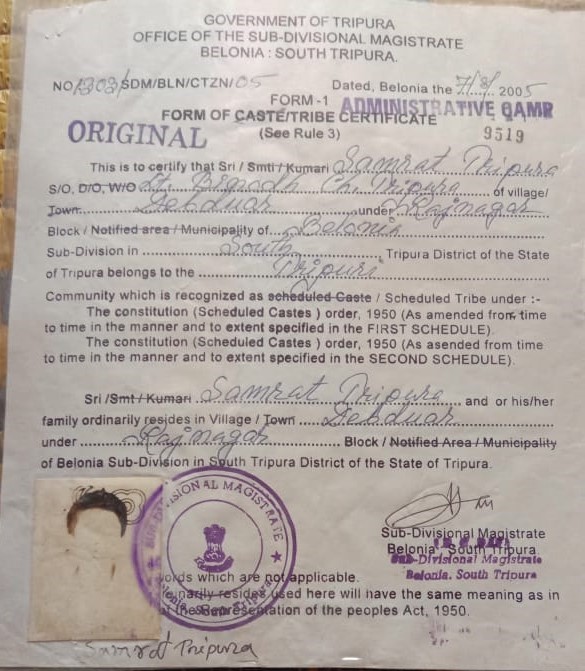 GOVERNMENT OF TRIPURA
OFFICE OF THE SUB-DIVISIONAL MAGISTRATE
BELONIA : SOUTH TRIPURA.
NO 1303/SDM/BLN/CTZN/05 Dated, Belonia the 7/3/2005
FORM -1 ADMINISTRATIVE CAMP
FORM OF CASTE/TRIBE CERTIFICATE
ORIGINAL (See Rule 3) 9519
This is to certify that Sri / Smti / Kumari Samrat Tripura
S/O, D/O, W/O Lt. Ch. Tripura of village/
Town Debduar under Rajnagar
Block / Notified area / Municipality of Belonia
Sub-Division in South Tripura District of the State
of Tripura belongs to the Tripuri
Community which is recognized as scheduled Caste / Scheduled Tribe under :-
The constitution (Scheduled Castes ) order, 1950 (As amended from time
to time in the manner and to extent specified in the FIRST SCHEDULE).
The constitution (Scheduled Castes ) order, 1950 (As asended from time
to time in the manner and to extent specified in the SECOND SCHEDULE).
Sri /Smt / Kumari Samrat Tripura and or his/her
family ordinarily resides in Village / Town Debduar
under Rajnagar Block / Notified Area / Municipality
of Belonia Sub-Division in South Tripura District of the State of Tripura.
SUB-DIVISIONAL MAGISTRATE
Belonia South Tripura
Sub-Divisional Magistrate
Belonia, South Tripura.
Sub-Divisional Magistrate
Belonia. South Tripura
ords which are not applicable.
inarily resides used here will have the same meaning as in
the Representation of the peoples Act, 1950.
Samrat Tripura